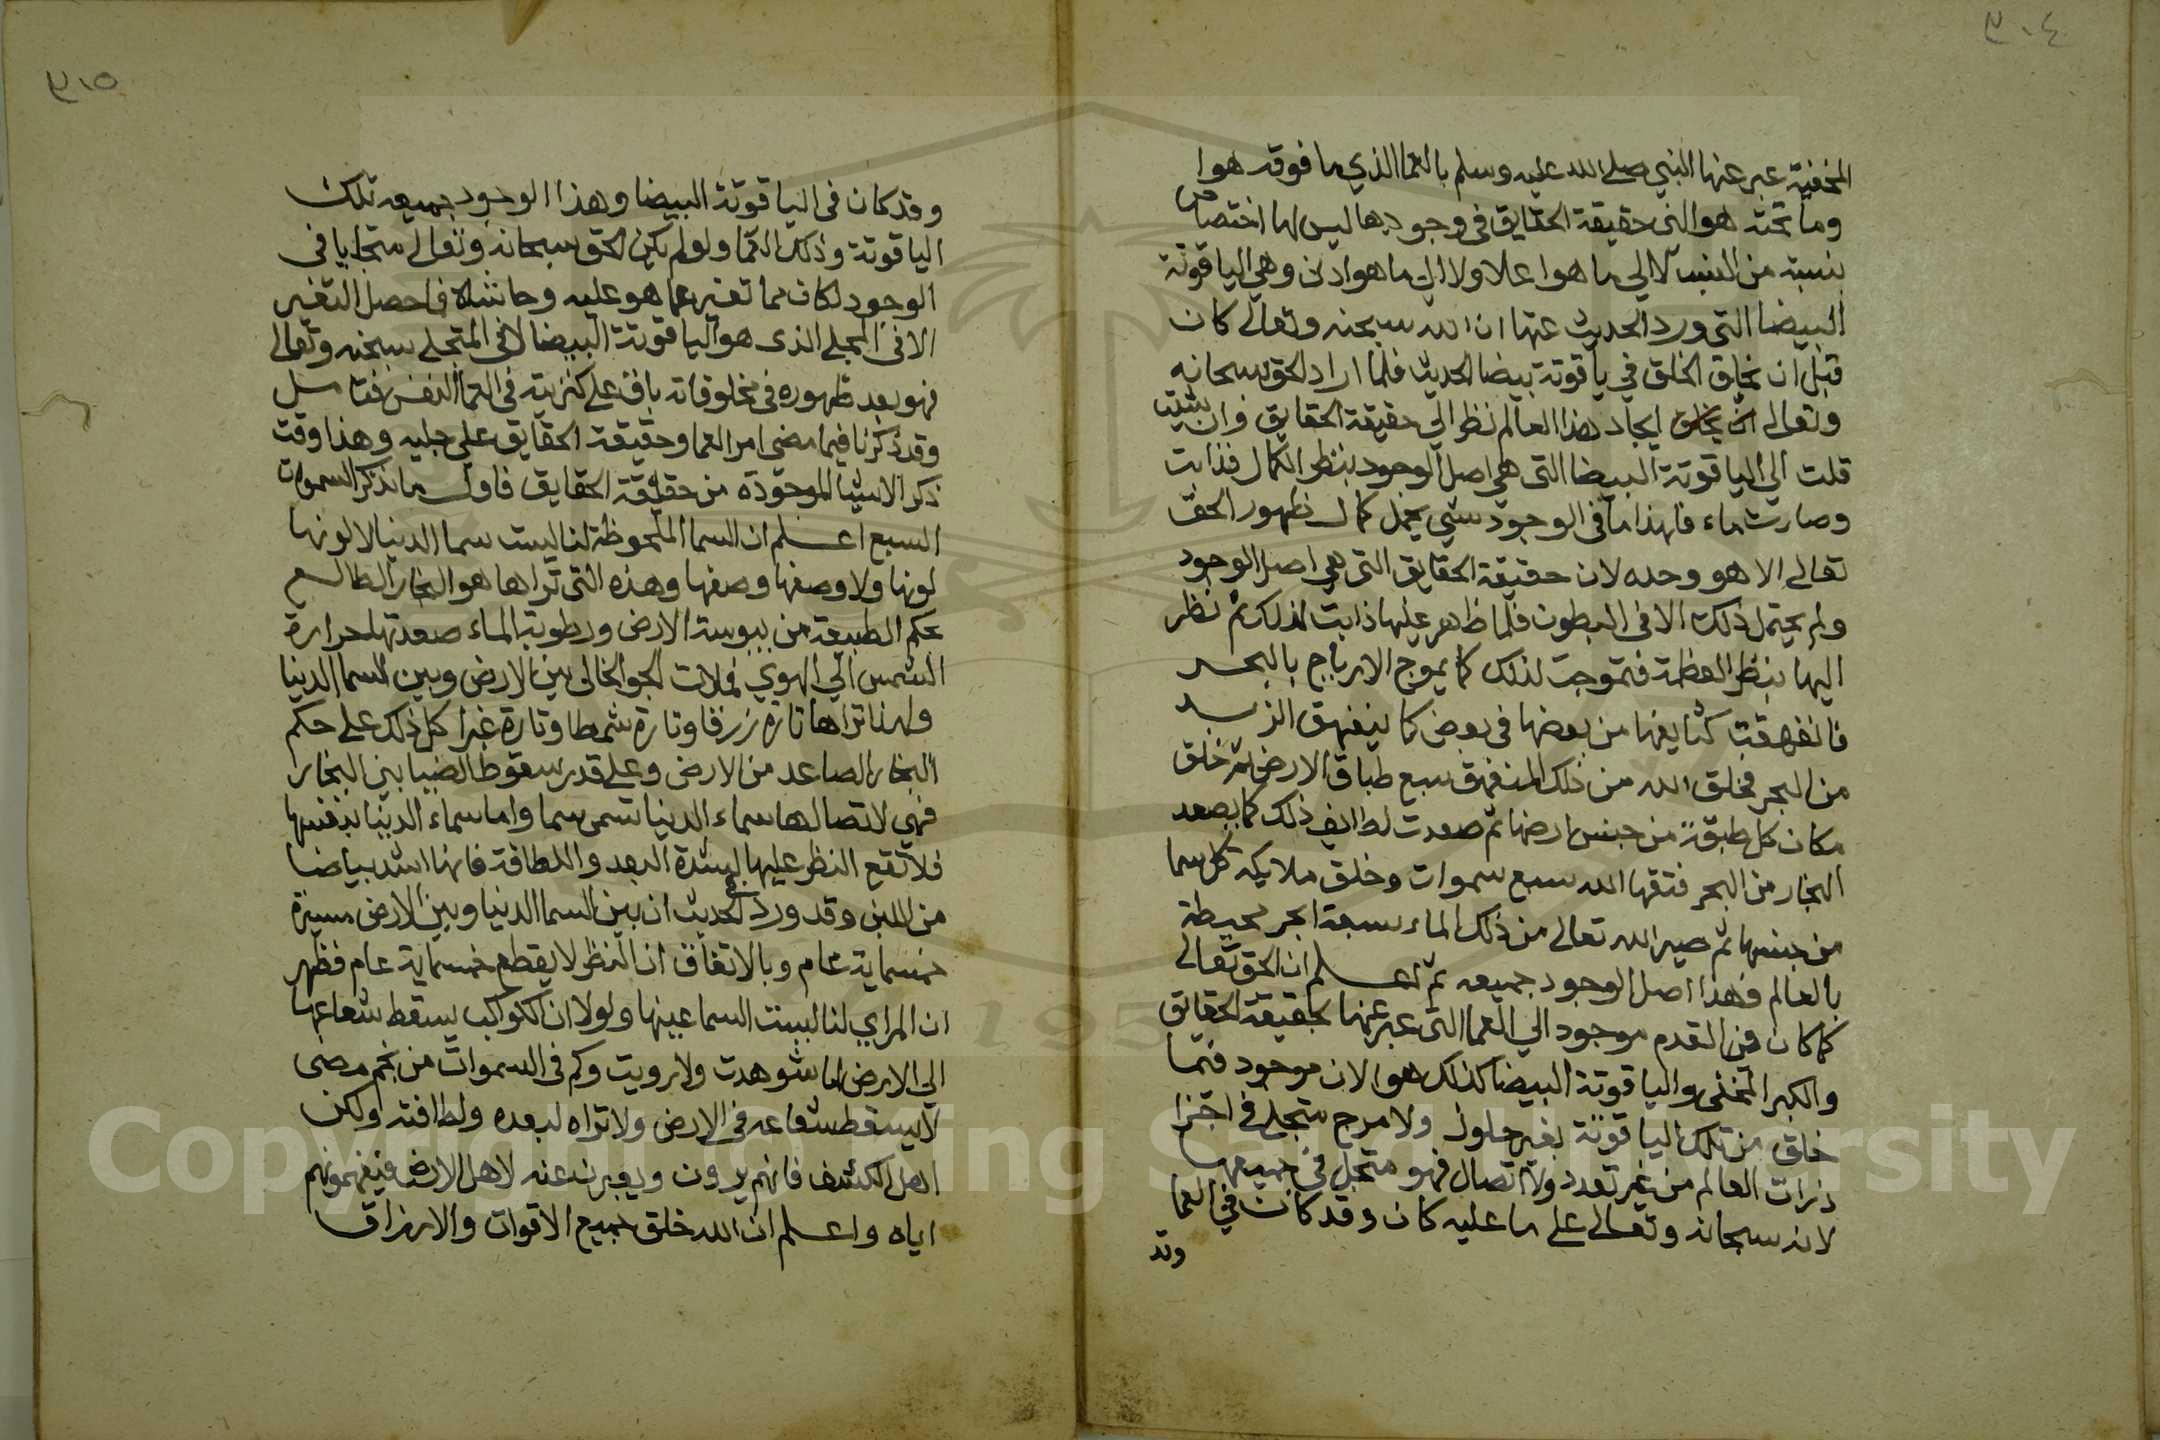 ٣٠٤
المخفية عبر عنها النبي صلى الله عليه وسلم بالعما الذي ما فوقه هوا
وما تحته هوا التى حقيقة الحقايق فى وجودها ليس لها اختصاص
بنسبة من النسب لا الي ما هوا علا ولا الي ما هوا دن وهي الياقوتة
البيضا التى ورد الحديث عنها ان الله سبحنه وتعالى كان
قبل ان يخلق الخلق في ياقوتة بيضا الحديث فلما اراد الحق سبحانه
وتعالى ايجاد هذا العالم نظر الي حقيقة الحقايق وان شئت
قلت الي الياقوتة البيضا التى هي اصل الوجود بنظر الكمال فذابت
وصارت ماء فلهذا ما في الوجود شي يحمل كمال ظهور الحق
تعالى الا هو وحده لان حقيقة الحقايق التى هي اصل الوجود
ولم يحتمل ذلك الا فى البطون فلما ظاهر عليها ذابت لذلك ثم نظر
اليها بنظر العظمة فتموجت لذلك كما يموج الارياح بالبحر
فانفهقت كثايفها من بعضها فى بعض كما ينفهق الزبد
من البحر فخلق الله من ذلك المنفهق سبع طباق الارض ثم خلق
مكان كل طبقة من جنس ارضها ثم صعدت لطاايف ذلك كما يصعد
البخار من البحر فتقها الله سبع سموات وخلق ملايكه كل سما
من جنسها ثم صير الله تعالى من ذلك الماء سبعة ابحر محيطة
بالعالم فهذا اصل الوجود جميعه ثم اعلم ان الحق تعالى
كما كان فى القدم موجود الي العما التى عبر عنها بحقيقة الحقايق
والكبر المخفى والياقوتة البيضا كذلك هو الان موجود فيما
خلق من تلك الياقوتة بغير حلول ولا مزج متجلى في اجزا
ذرات العالم من غير تعدد ولا اتصال فهو متجل في جميعها
لانه سبحانه وتعالى على ما عليه كان وقد كان في العما
وقد
٣١٥
وقد كان فى الياقوتة البيضا وهذا الوجود جميعه تلك
الياقوتة وذلك العما ولو لم يكن الحق سبحانه وتعالى متجليا فى
الوجود لكان مما تغير عما هو عليه وحاشاه فما حصل التغير
الا فى المجلى الذى هو الياقوتة البيضا لا فى المتجلى سبحنه وتعالى
فهو بعد ظهوره فى مخلوقاته باق على كنزيته فى العما النفس فتامل
وقد ذكرنا فيما مضى امر العما وحقيقة الحقايق على جليه وهذا وقت
ذكر الاشيا الموجودة من حقيقة الحقايق فاول ما نذكر السموات
السبع اعلم ان السما الملحوظة لنا ليست سما الدنيا لا لونها
لونها ولا وصفها وصفها وهذه التى تراها هو البخار الطالع
بحكم الطبيعة من يبوسة الارض ورطوبة الماء صعدتها حرارة
الشمس الي الهوي فملات الجو الخالى بين الارض وبين السما الدنيا
ولهذا تراها تارة زرقا وتارة شمطا وتارة غبرا كل ذلك على حكم
البخار الصاعد من الارض وعلى قدر سقوط الضيا بين البخار
فهي لاتصالها سماء الدنيا تسمى سما واما سماء الدنيا بنفسها
فلا تقع النظر عليها لشدة البعد واللطافة فانها اشد بياضا
من اللبن وقد ورد الحديث ان بين السما الدنيا وبين الارض مسيرة
خمسماية عام وبالاتفاق ان النظر لا يقطع خمسماية عام فظهر
ان المرايي لنا ليست السما عينها ولولا ان الكواكب يسقط شعاعها
الي الارض لما شوهدت ولا رويت وكم فى السموات من نجم مضى
لا يسقط شعاعه فى الارض ولا تراه لبعده ولطافته ولكن
اهل الكشف فانهم يرون ويعبرن عنه لاهل الارض فيفهمونهم
اياه واعلم ان الله خلق جميع الاقوات والارزاق
Copyright © King Saud University